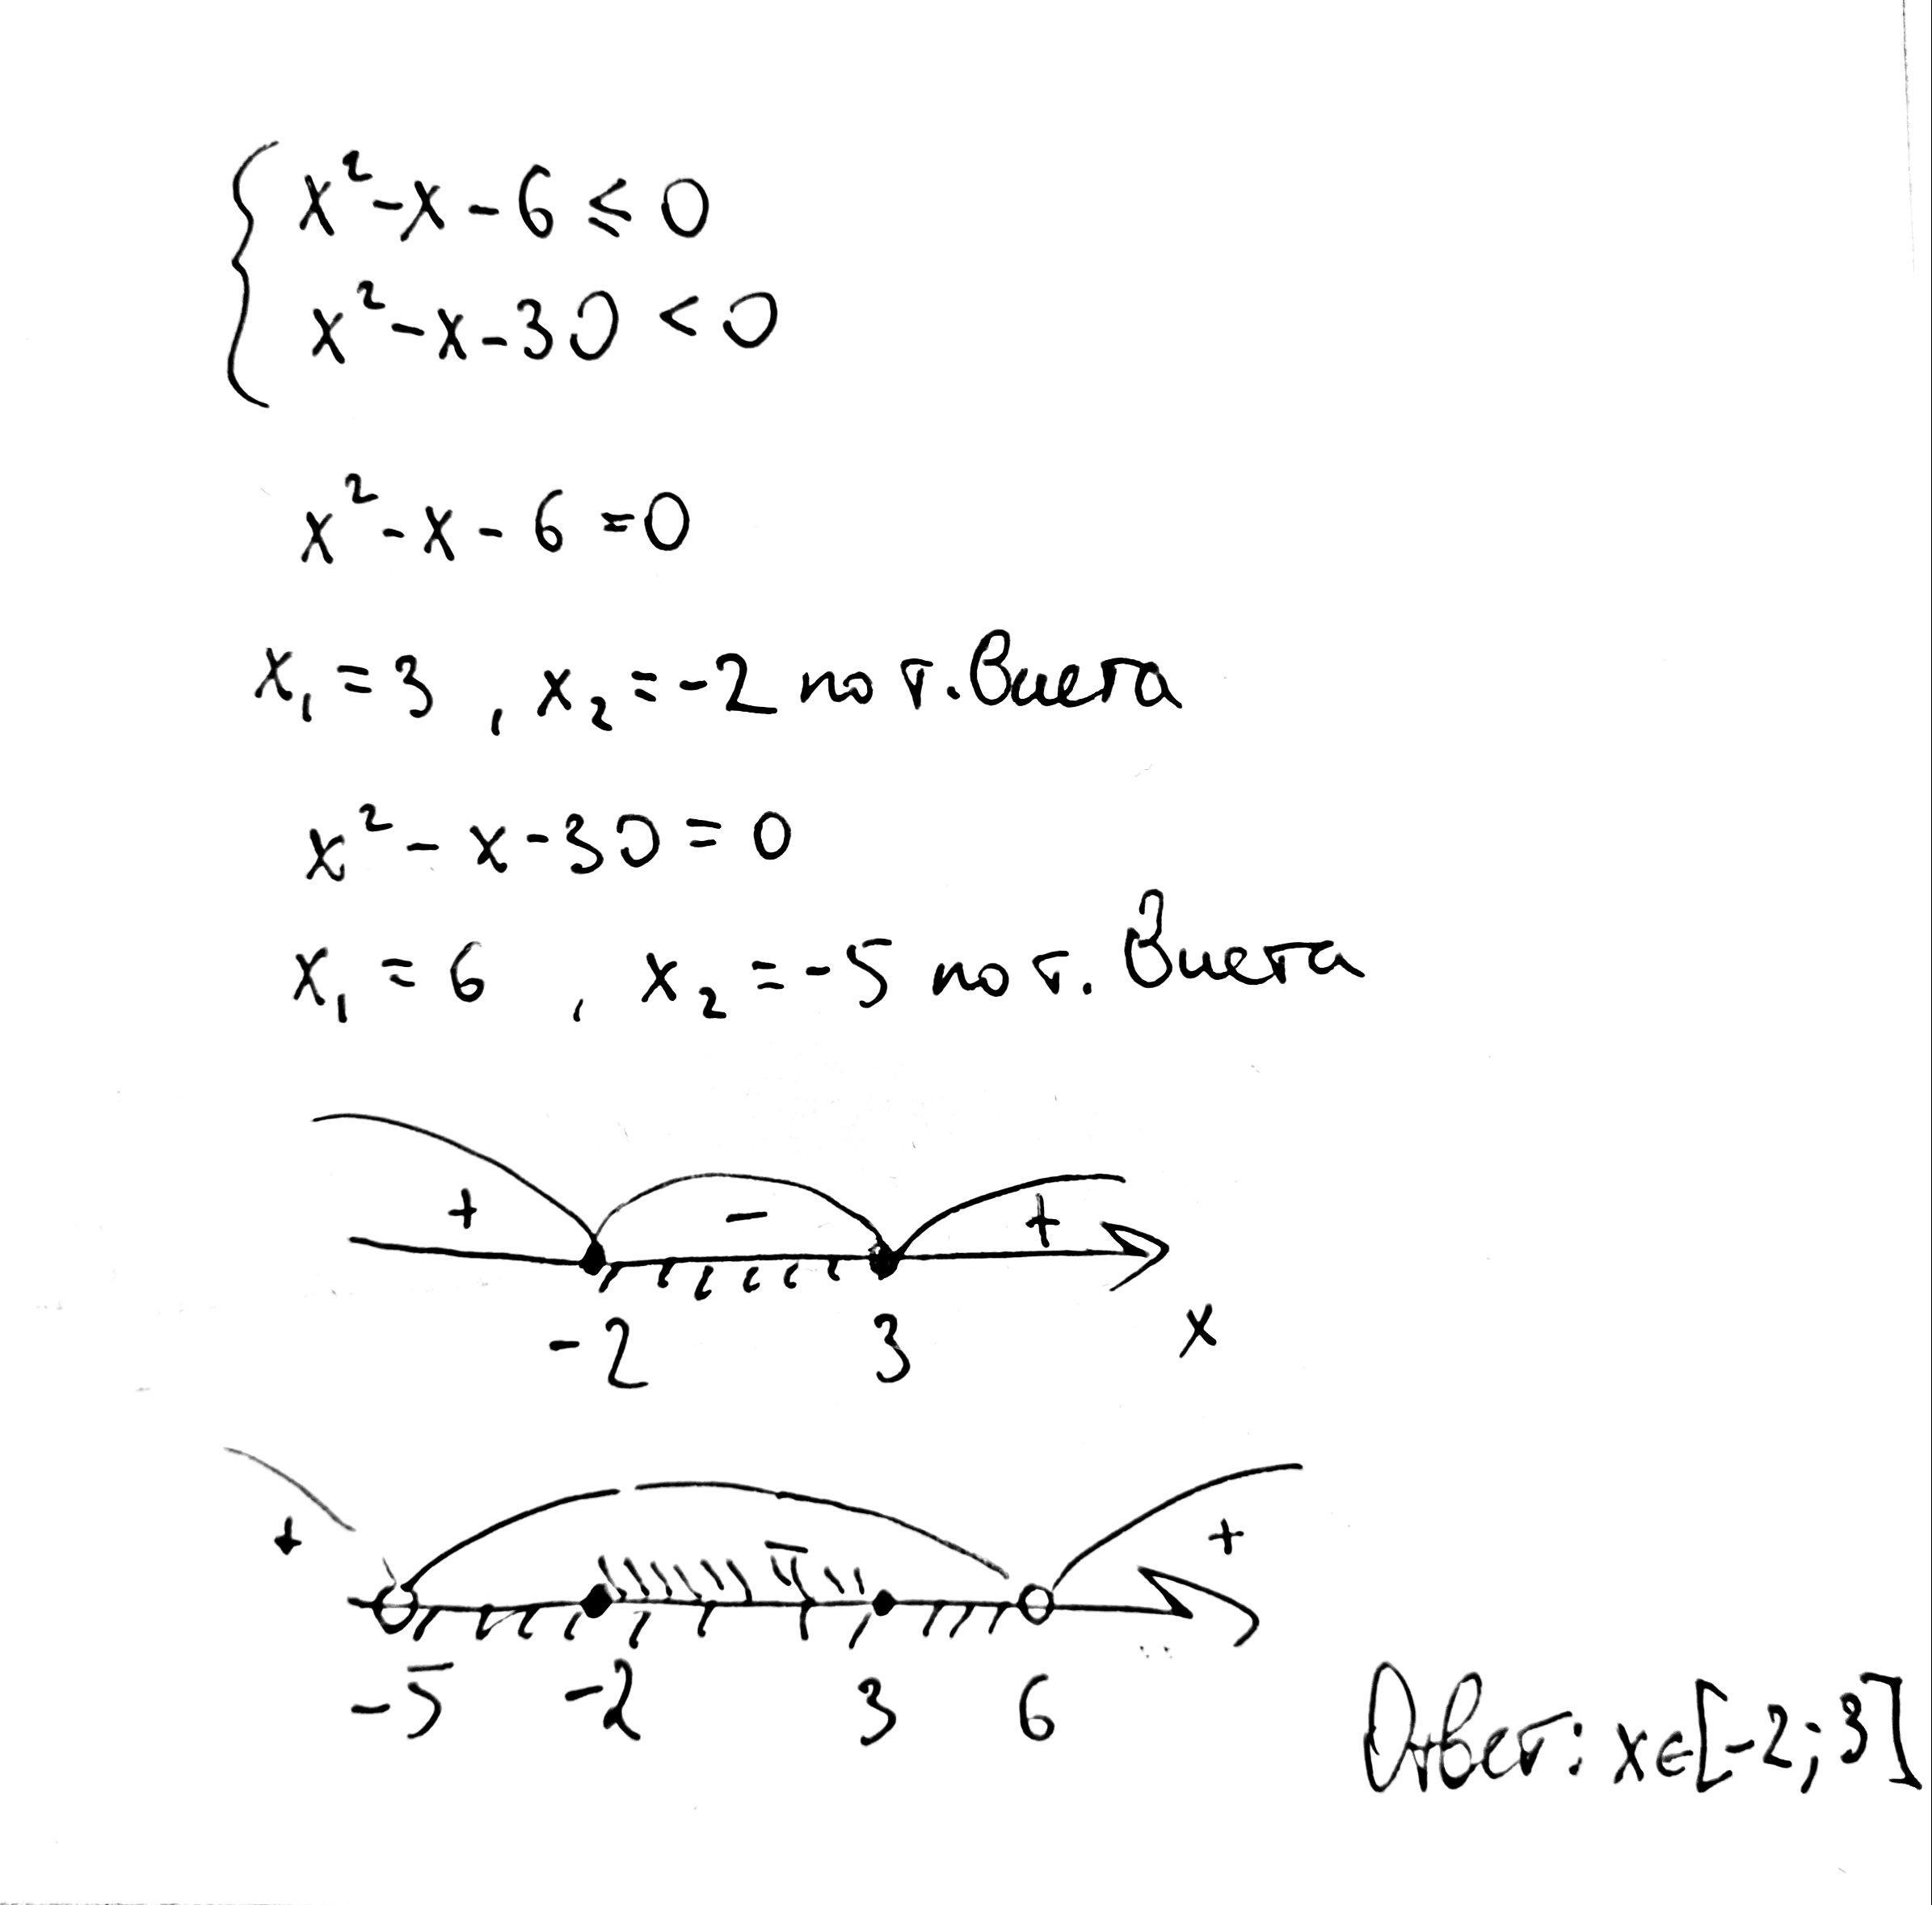 x² - x - 6 ≤ 0
x² - x - 30 < 0
x² - x - 6 = 0
x₁ = 3 , x₂ = -2 по т. Виета
x² - x - 30 = 0
x₁ = 6 , x₂ = -5 по т. Виета
+ - +
-2 3 x
+ - +
-5 -2 3 6
Ответ: x∈[-2; 3]